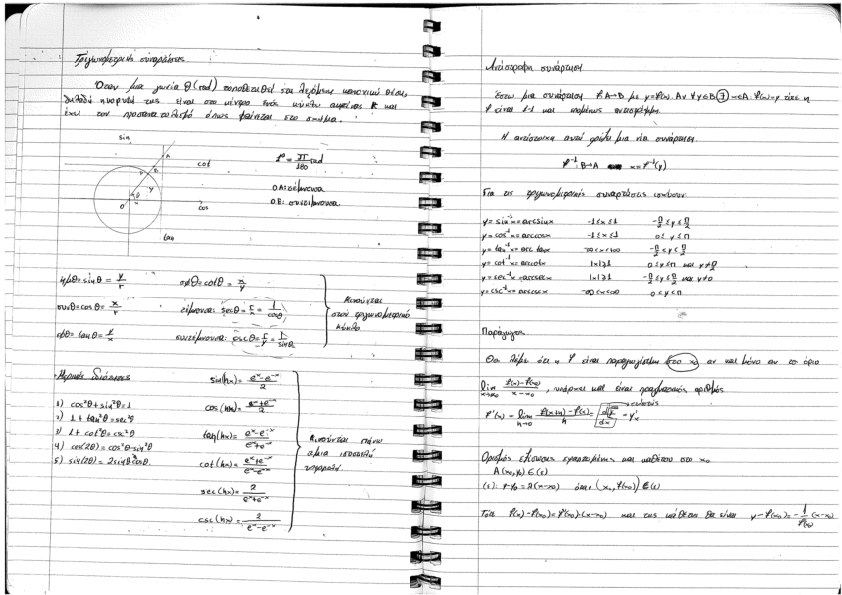 Τριγωνομετρικές συναρτήσεις
Όταν μια γωνία θ(rad) τοποθετηθεί στη λεγόμενη κανονική θέση,
δηλαδή η κορυφή της είναι στο κέντρο ενός κύκλου ακτίνας R και
έχει τον προσανατολισμό όπως φαίνεται στο σχήμα.
sin
cot
cos
tan
A
B
y
θ
x
O
1° = π/180 rad
OA: τέμνουσα
OB: συντέμνουσα
ημθ=sinθ = y/r
σφθ=cotθ = x/y
συνθ=cosθ = x/r
τέμνουσα: secθ = r/x = 1/cosθ
εφθ= tanθ = y/x
συντέμνουσα: cscθ = r/y = 1/sinθ
Κινούνται
στον τριγωνομετρικό
κύκλο
Μερικές ιδιότητες
1) cos²θ+sin²θ=1
2) 1+tan²θ=sec²θ
3) 1+cot²θ=csc²θ
4) cos(2θ)=cos²θ-sin²θ
5) sin(2θ)=2sinθcosθ.
sin(hx)= (e^x-e^-x)/2
cos(hx)= (e^x+e^-x)/2
tan(hx)= (e^x-e^-x)/(e^x+e^-x)
cot(hx)= (e^x+e^-x)/(e^x-e^-x)
sec(hx)= 2/(e^x+e^-x)
csc(hx)= 2/(e^x-e^-x)
Κινούνται πάνω
σε μια ισοσκελή
υπερβολή.
Αντίστροφη συνάρτηση
Έστω μια συνάρτηση f: A→B με y=f(x). Αν ∀y∈B ∃ x∈A: f(x)=y τότε η
f είναι 1-1 και επομένως αντιστρέψιμη.
Η αντίστοιχη αυτή ορίζει μια νέα συνάρτηση.
f⁻¹: B→A x=f⁻¹(y)
Για τις τριγωνομετρικές συναρτήσεις ισχύουν:
y=sin⁻¹x=arcsinx -1≤x≤1 -π/2≤y≤π/2
y=cos⁻¹x=arccosx -1≤x≤1 0≤y≤π
y=tan⁻¹x=arctanx -∞<x<+∞ -π/2≤y≤π/2
y=cot⁻¹x=arccotx |x|≥1 0≤y≤π και y≠π/2
y=sec⁻¹x=arcsecx |x|≥1 -π/2≤y≤π/2 και y≠0
y=csc⁻¹x=arccscx -∞<x<∞ 0<y<π
Παράγωγος.
Θα λέμε ότι η f είναι παραγωγίσιμη στο x₀ αν και μόνο αν το όριο
lim x→x₀ (f(x)-f(x₀))/(x-x₀), υπάρχει και είναι πραγματικός αριθμός.
f'(x)= lim h→0 (f(x+h)-f(x))/h = dy/dx = y'ₓ
Ορισμός εξίσωσης εφαπτομένης και καθέτου στο x₀
A(x₀,y₀)∈(ε)
(ε): y-y₀=λ(x-x₀) όπου (x₀,f(x₀))∈(ε)
Τότε f(x)-f(x₀)=f'(x₀)·(x-x₀) και της κάθετης θα είναι y-f(x₀)=-1/f'(x₀) (x-x₀)